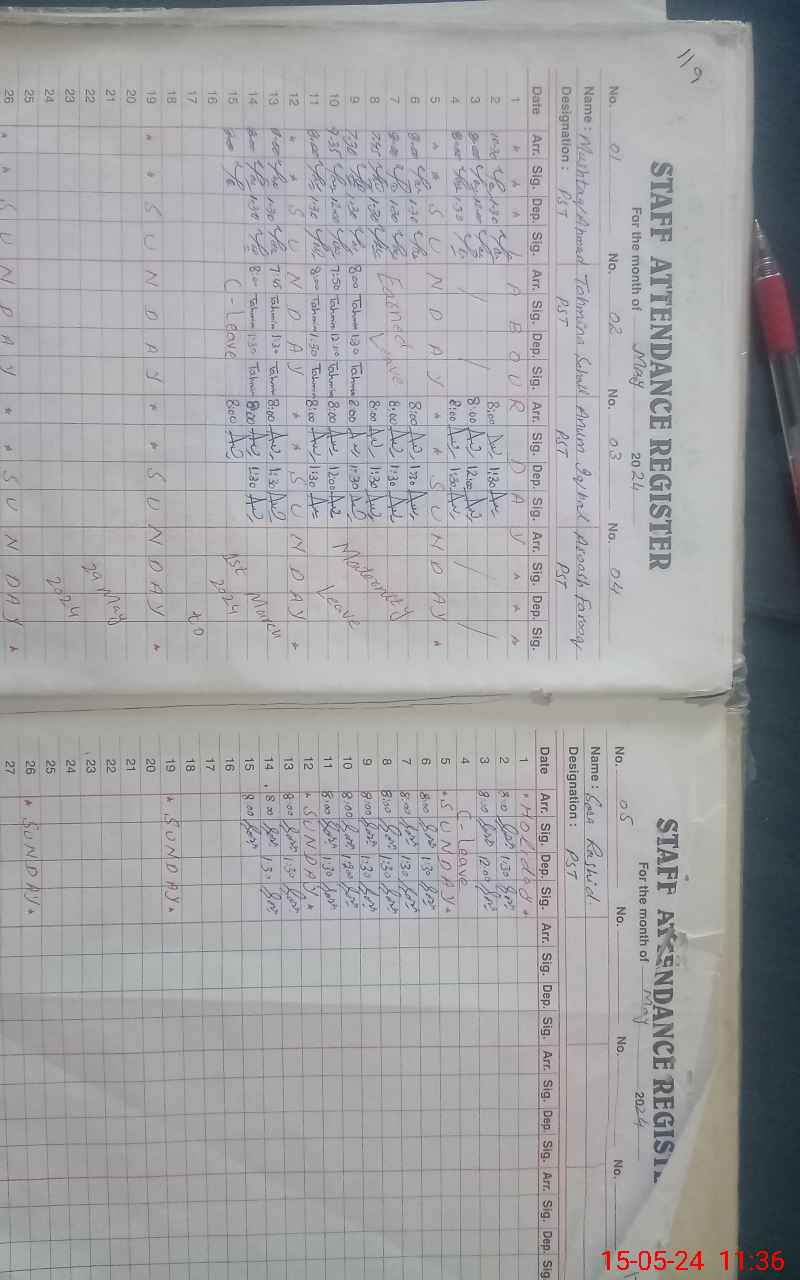 119
STAFF ATTENDANCE REGISTER
For the month of May 2024
No. 01 No. 02 No. 03 No. 04
Name: Mushtaq Ahmad Tahmina Anum Iqbal Farooq
Designation: PST PST PST PST
Date Arr. Sig. Dep. Sig. Arr. Sig. Dep. Sig. Arr. Sig. Dep. Sig. Arr. Sig. Dep. Sig.
1 * * * LABOUR DAY * * *
2 11:30 1:30 8:00 1:30
3 8:00 12:00 8:00 12:00
4 8:00 1:30 8:00 1:30
5 * * SUNDAY * * SUNDAY *
6 8:00 1:30 8:00 1:30
7 8:00 1:30 Earned Leave 8:00 1:30
8 7:45 1:30 8:00 1:30
9 7:30 1:30 8:00 Tahmin 1:30 Tahmin 8:00 1:30
10 7:35 12:00 7:50 Tahmin 12:10 Tahmin 8:00 12:00 Maternity
11 8:00 1:30 8:00 Tahmin 1:30 Tahmin 8:00 1:30 Leave
12 * * SUNDAY * * SUNDAY *
13 8:00 1:30 7:45 Tahmin 1:30 Tahmin 8:00 1:30
14 8:00 1:30 8:00 Tahmin 1:30 Tahmin 8:00 1:30 March
15 8:00 C-Leave 8:00 1st
16 2024
17 to
18
19 * * SUNDAY * * SUNDAY *
20
21
22 29 May
23
24 2024
25
26 * * SUNDAY * * SUNDAY *
STAFF ATTENDANCE REGIST
For the month of May 2024
No. 05 No. No. No.
Name: Rashid
Designation: PST
Date Arr. Sig. Dep. Sig. Arr. Sig. Dep. Sig. Arr. Sig. Dep. Sig. Arr. Sig. Dep. Sig.
1 * Holiday *
2 8:00 1:30
3 8:00 12:00
4 C leave
5 * SUNDAY *
6 8:00 1:30
7 8:00 1:30
8 8:00 1:30
9 8:00 1:30
10 8:00 12:00
11 8:00 1:30
12 * SUNDAY *
13 8:00 1:30
14 8:00 1:30
15 8:00
16
17
18
19 * SUNDAY *
20
21
22
23
24
25
26 * SUNDAY *
27
15-05-24 11:36